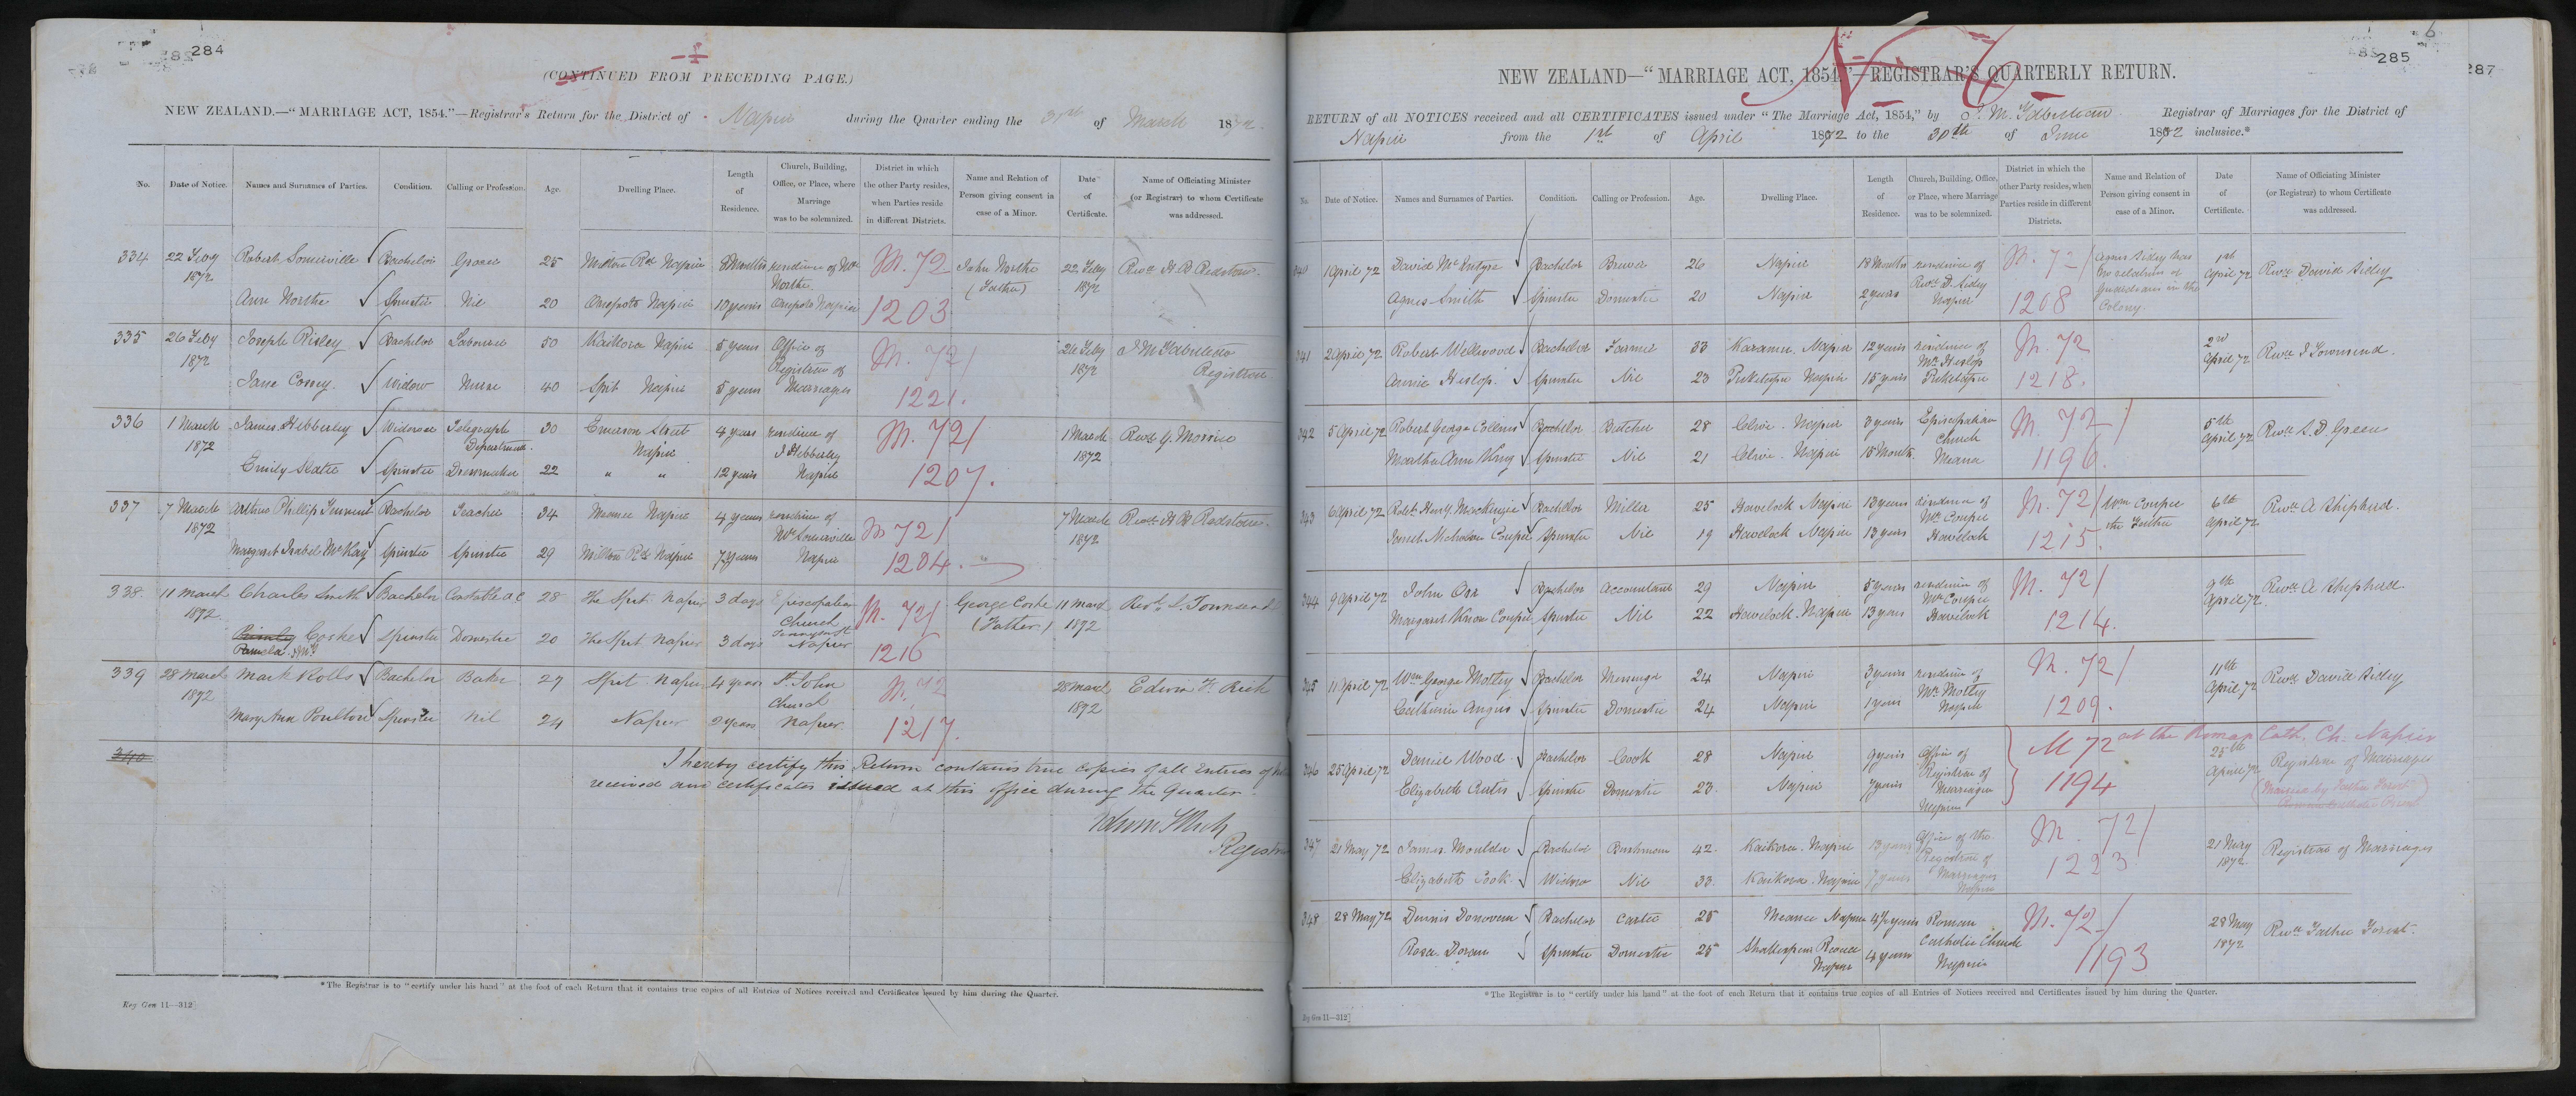 284
(CONTINUED FROM PRECEDING PAGE.)
NEW ZEALAND.—"MARRIAGE ACT, 1854."—Registrar's Return for the District of Napier during the Quarter ending the 31st of March 1872.
No. Date of Notice. Names and Surnames of Parties. Condition. Calling or Profession. Age. Dwelling Place. Length of Residence. Church, Building, Office, or Place, where Marriage was to be solemnized. District in which the other Party resides, when Parties reside in different Districts. Name and Relation of Person giving consent in case of a Minor. Date of Certificate. Name of Officiating Minister (or Registrar) to whom Certificate was addressed.
334 22 Feby 1872 Robert Somerville Bachelor Grocer 25 Milton Rd Napier 8 Months residence of Mr Northe M. 72 John Northe (Father) 22 Feby 1872 Revd H B Redstone
Ann Northe Spinster Nil 20 Onepoto Napier 10 years Onepoto Napier 1203
335 26 Feby 1872 Joseph Risley Bachelor Labourer 50 Kaikora Napier 5 years Office of Registrar of M. 72/ 26 Feby 1872 Registrar
Jane Comy Widow Nurse 40 Spit Napier 5 years Marriages 1221.
336 1 March 1872 James Hebberley Widower Telegraph Department 30 Emerson Street Napier 4 years residence of J Hebberley M. 72/ 1 March 1872 Revd G. Morice
Emily Slater Spinster Dressmaker 22 " " 12 years Napier 1207.
337 7 March 1872 Arthur Phillip Bachelor Teacher 34 Meanee Napier 4 years residence of Mr Somerville M 72/ 7 March 1872 Revd H B Redstone
Margaret Isabel McKay Spinster Spinster 29 Milton Rd Napier 7 years Napier 1204.
338. 11 March 1872. Charles Smith Bachelor Constable A C 28 The Spit Napier 3 days Episcopalian Church Tennyson St M. 72/ George Cooke (Father) 11 March 1872 Revd J. Townsend
Cooke Spinster Domestic 20 The Spit Napier 3 days Napier 1216
Pamela
339 28 March 1872 Mark Rolls Bachelor Baker 27 Spit Napier 4 years St John Church M. 72 28 March 1872 Edwin F. Rich
Mary Ann Poulton Spinster Nil 24 Napier 2 years Napier 1217.
340
I hereby certify this Return contains true copies of all Entries of
received and certificates issued at this office during the Quarter.
Edwin F Rich
Registrar
*The Registrar is to "certify under his hand" at the foot of each Return that it contains true copies of all Entries of Notices received and Certificates issued by him during the Quarter.
Reg Gen 11—312]
285
287
6
NEW ZEALAND—"MARRIAGE ACT, 1854."—REGISTRAR'S QUARTERLY RETURN.
RETURN of all NOTICES received and all CERTIFICATES issued under "The Marriage Act, 1854," by Registrar of Marriages for the District of
Napier from the 1st of April 1872 to the 30th of June 1872 inclusive.*
No. Date of Notice. Names and Surnames of Parties. Condition. Calling or Profession. Age. Dwelling Place. Length of Residence. Church, Building, Office, or Place, where Marriage was to be solemnized. District in which the other Party resides, when Parties reside in different Districts. Name and Relation of Person giving consent in case of a Minor. Date of Certificate. Name of Officiating Minister (or Registrar) to whom Certificate was addressed.
340 1 April 72 David McIntyre Bachelor Brewer 26 Napier 18 Months residence of Revd D. Sidey M. 72/ Agnes Sidey has no relation or guardians in the Colony. 1st April 72 Revd David Sidey
Agnes Smith Spinster Domestic 20 Napier 2 years Napier 1208
341 2 April 72 Robert Wellwood Bachelor Farmer 33 Karamu Napier 12 years residence of Mr Heslop M. 72 2nd April 72 Revd J Townsend.
Annie Heslop. Spinster Nil 23 Puketapu Napier 15 years Puketapu 1218.
342 5 April 72 Robert George Collins Bachelor Butcher 28 Clive Napier 3 years Episcopalian Church M. 72/ 5th April 72 Revd
Martha Ann King Spinster Nil 21 Clive Napier 15 Months Meanee 1196.
343 6 April 72 Robt Henry MacKenzie Bachelor Miller 25 Havelock Napier 13 years residence of Mr Couper M. 72/ Wm Couper the Father 6th April 72 Revd A Shepherd.
Janet Nicholson Couper Spinster Nil 19 Havelock Napier 13 years Havelock 1215.
344 9 April 72 John Orr Bachelor Accountant 29 Napier 5 years residence of Mr Couper M. 72/ 9th April 72. Revd A Shepherd.
Margaret Couper Spinster Nil 22 Havelock. Napier 13 years Havelock 1214.
345 11 April 72 Wm George Motley Bachelor Messenger 24 Napier 3 years residence of Mrs Motley M. 72/ 11th April 72 Revd David Sidey
Catherine Angus Spinster Domestic 24 Napier 1 year Napier 1209.
346 25 April 72 Daniel Wood Bachelor Cook 28 Napier 9 years Office of Registrar of M 72 at the Roman Cath. Ch. Napier 25th April 72 Registrar of Marriages
Elizabeth Spinster Domestic 23 Napier 7 years Marriages Napier 1194 (Married by Father Forest Roman Catholic Priest)
347 21 May 72 James Moulder Bachelor Bushman 42. Kaikora. Napier 13 years Office of the Registrar of M. 72/ 21 May 1872 Registrar of Marriages
Elizabeth Cook Widow Nil 33. Kaikora. Napier 7 years Marriages Napier 1223
348 28 May 72 Dennis Donovan Bachelor Carter 25 Meanee Napier 4½ years Roman M. 72/ 28 May 1872 Revd Father Forest.
Rosa Doran Spinster Domestic 25 Shakespeare Road Napier 4 years Catholic Church Napier 1193
*The Registrar is to "certify under his hand" at the foot of each Return that it contains true copies of all Entries of Notices received and Certificates issued by him during the Quarter.
Reg Gen 11—312]